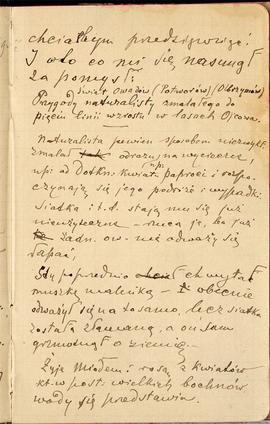 chciałbym przedsięwziąć!
I oto co mi się nasunął
za pomysł:
Świat Owadów (Potworów) (Olbrzymów)
Przygody naturalisty zmalałego do
pięciu linii wzrostu w lasach Ojcowa.
Naturalista pewien sposobem niezwykł.
zmalał od rażony wycieczce,
np.
np: od Dotkn. kwiatu paproci i rozpo-
czynają się jego podróże i wypadki.
Siatka i t.d. stają mu się już
nieużyteczne – rzuca je, bo już
żadn. ow. nie odważy się
łapać,
Gdy poprzednio chwytał
muszkę maleńką – i obecnie
odważył się na to samo, lecz siatka
została złamaną, a on sam
grzmotnął o ziemię.
Żyje miodem i rosą z kwiatków
kt. w post. wielkich bochnów
wody się przedstawia.